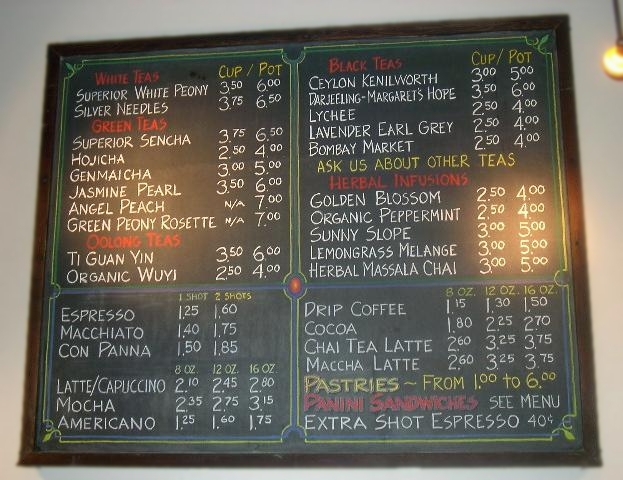 WHITE TEAS CUP / POT
SUPERIOR WHITE PEONY 3.50 6.00
SILVER NEEDLES 3.75 6.50
GREEN TEAS
SUPERIOR SENCHA 3.75 6.50
HOJICHA 2.50 4.00
GENMAICHA 3.00 5.00
JASMINE PEARL 3.50 6.00
ANGEL PEACH N/A 7.00
GREEN PEONY ROSETTE N/A 7.00
OOLONG TEAS
TI GUAN YIN 3.50 6.00
ORGANIC WUYI 2.50 4.00
BLACK TEAS CUP / POT
CEYLON KENILWORTH 3.00 5.00
DARJEELING-MARGARET'S HOPE 3.50 6.00
LYCHEE 2.50 4.00
LAVENDER EARL GREY 2.50 4.00
BOMBAY MARKET 2.50 4.00
ASK US ABOUT OTHER TEAS
HERBAL INFUSIONS
GOLDEN BLOSSOM 2.50 4.00
ORGANIC PEPPERMINT 2.50 4.00
SUNNY SLOPE 3.00 5.00
LEMONGRASS MELANGE 3.00 5.00
HERBAL MASSALA CHAI 3.00 5.00
1 SHOT 2 SHOTS
ESPRESSO 1.25 1.60
MACCHIATO 1.40 1.75
CON PANNA 1.50 1.85
8 OZ. 12 OZ. 16 OZ.
LATTE/CAPUCCINO 2.10 2.45 2.80
MOCHA 2.35 2.75 3.15
AMERICANO 1.25 1.60 1.75
8 OZ. 12 OZ. 16 OZ.
DRIP COFFEE 1.15 1.30 1.50
COCOA 1.80 2.25 2.70
CHAI TEA LATTE 2.60 3.25 3.75
MACCHA LATTE 2.60 3.25 3.75
PASTRIES ~ FROM 1.00 TO 6.00
PANINI SANDWICHES SEE MENU
EXTRA SHOT ESPRESSO 40¢